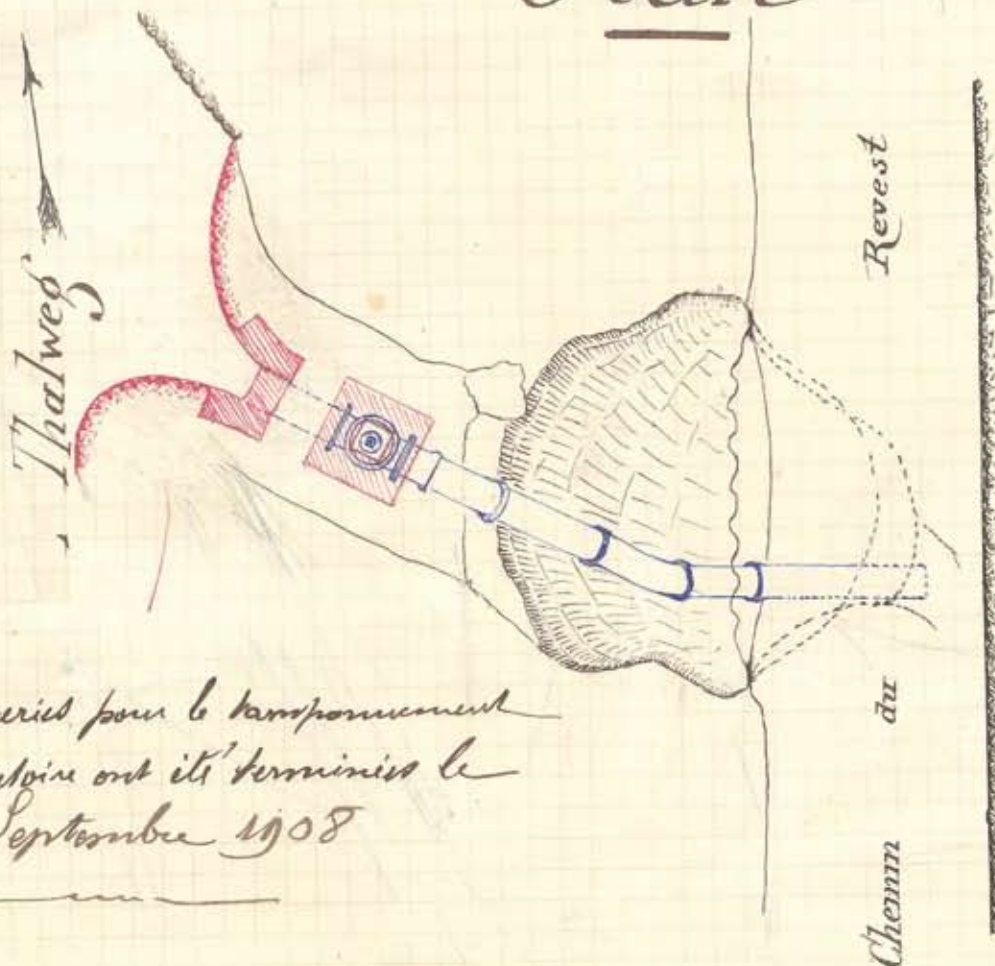 Plan
Thalweg
Chemin du Revest
eries pour le tamponnement
atoire ont été terminées le
Septembre 1908